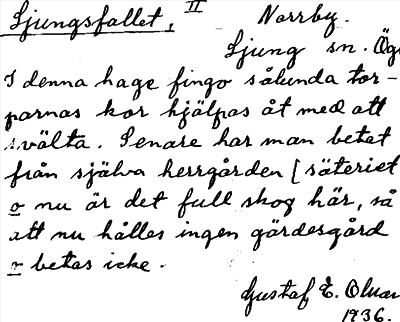 Ljungsfallet, II Norrby.
Ljung sn. Ög
I denna hage fingo sålunda tor-
parnas kor hjälpas åt med att
svälta. Senare har man betat
från själva herrgården [säteriet
o nu är det full skog här, så
att nu hålles ingen gärdesgård
o betas icke.
Gustaf E.
1936.